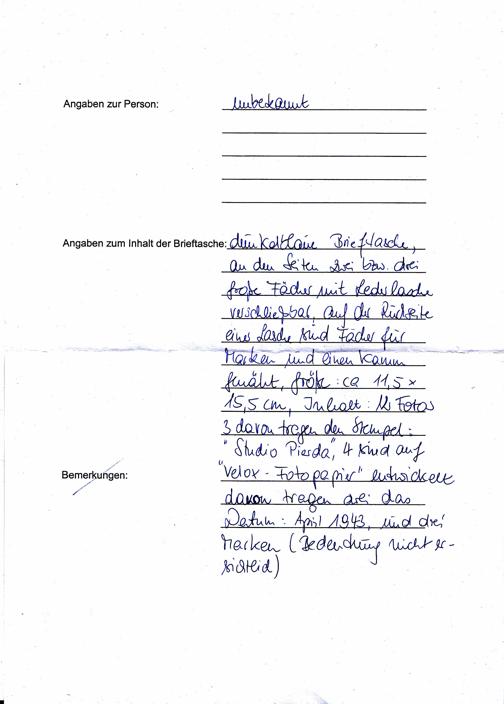 Angaben zur Person: unbekannt
Angaben zum Inhalt der Brieftasche: dunkelblaue Brieftasche,
an den Seiten zwei bzw. drei
große Fächer mit Lederlasche
verschließbar, auf der Rückseite
einer Lasche sind Fächer für
Marken und einen Kamm
genäht, größe: ca 11,5 x
15,5 cm, Inhalt: 12 Fotos
3 davon tragen den Stempel:
"Studio Pierda", 4 sind auf
Bemerkungen: "Velox - Fotopapier" entwickelt
davon tragen drei das
Datum: April 1943, und drei
Marken (Bedeutung nicht er-
sichtlich)